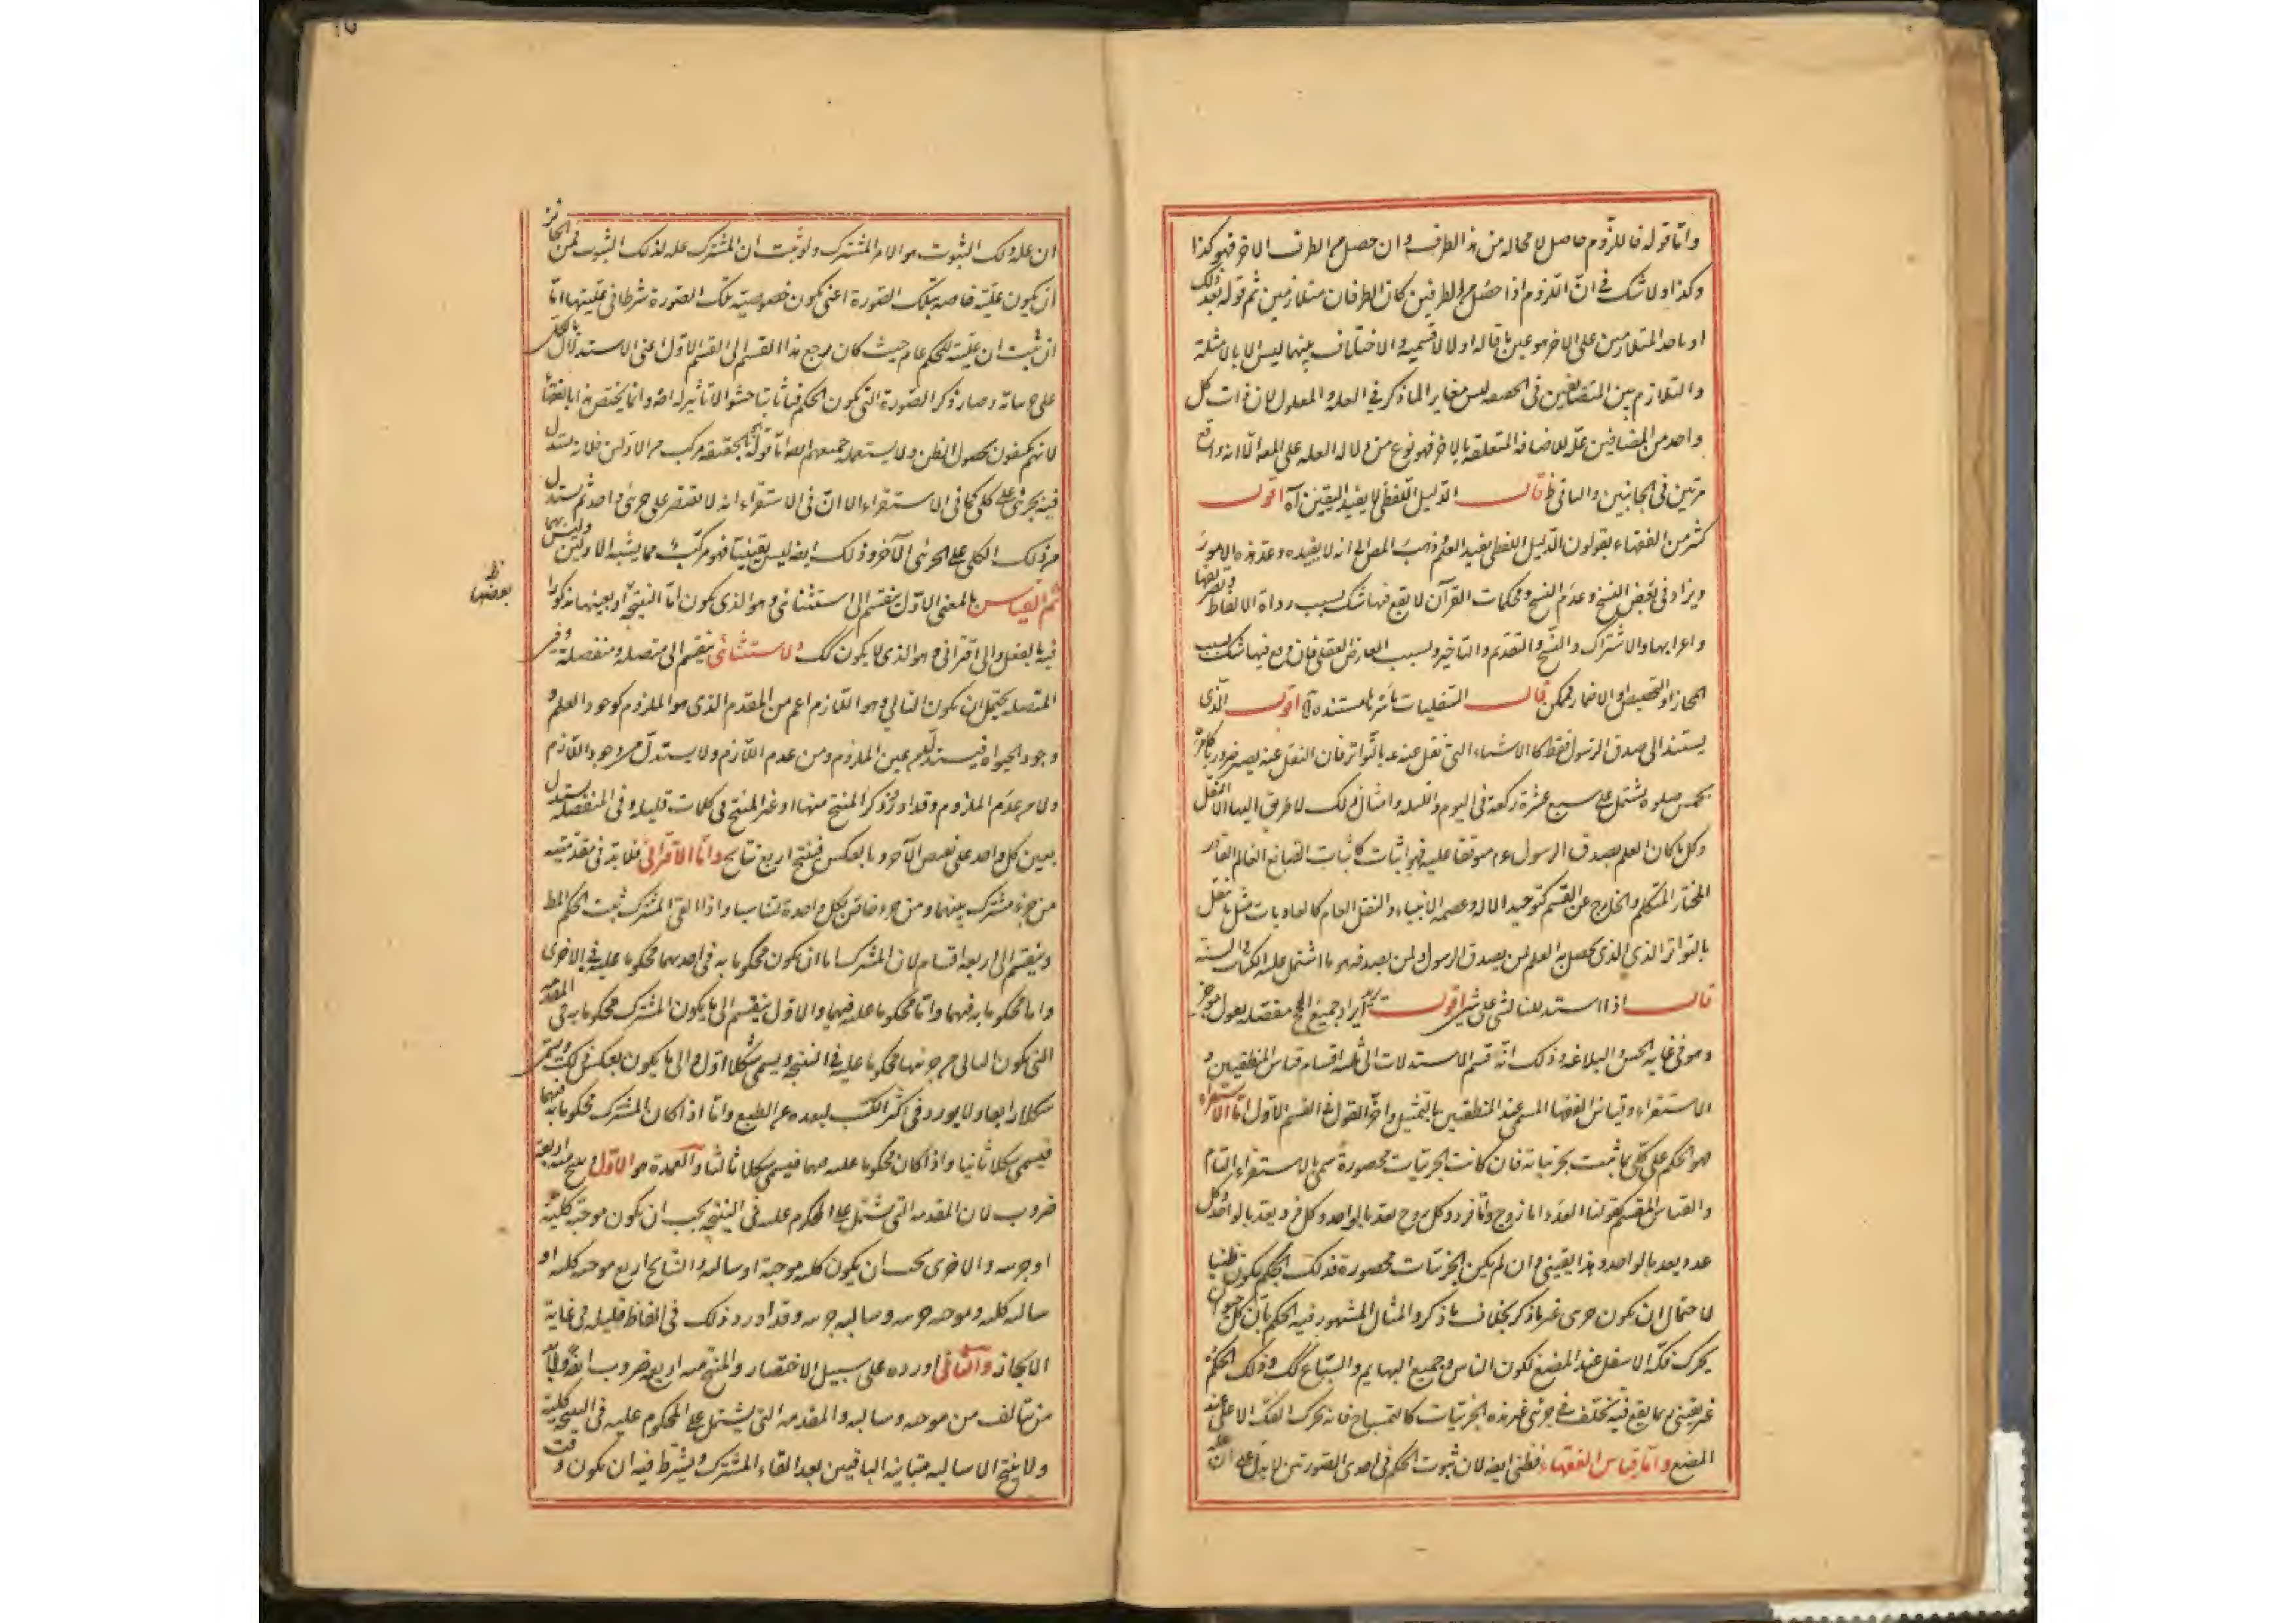 واما قوله فاللزوم حاصل لا محاله من هذا الطرف وان حصل من الطرف الاخر فهو كذا
وكذا ولا شك في ان اللزوم اذا حصل من الطرفين كان الطرفان متلازمين ثم قوله بعد ذلك
او باحد المتلازمين على الاخر هو عين ما قاله اولا لا قسيمه والاختلاف بينهما ليس الا بالامثلة
والتلازم بين المتضايفين في الحقيقه ليس مغاير الما ذكر في العله والمعلول لان ذات كل
واحد من المضافين علة للاضافه المتعلقه بالاخر فهو نوع من دلاله العله على المعلول الا انه واقع
مرتين في الجانبين والباقي ظ قال الدليل اللفظي لا يفيد اليقين آه اقول
كثير من الفقهاء يقولون الدليل اللفظي يفيد العلم وذهب المص الى انه لا يفيده وعد هذه الامور
ويزاد في بعض النسخ وعدم النسخ ومحكمات القرآن لا يقع فيها شك بسبب رواة الالفاظ وتصريفها
واعرابها والاشتراك والنسخ والتقديم والتاخير وبسبب المعارض العقلي فان وقع فيها شك بسبب
المجاز او التخصيص او الاضمار فممكن قال النقليات باسرها مستندة آه اقول الذي
يستند الى صدق الرسول فقط كالاشياء التي نقل عنه عم بالتواتر فان النقل عنه يصير ضروريا كامر
بخمس صلوة يشتمل على سبع عشرة ركعة في اليوم والليله وامثال ذلك لا طريق اليها الا النقل
وكل ما كان العلم بصدق الرسول عم موقفا عليه فهو اثبات كاثبات الصانع العالم القادر
المختار المتكلم والخارج عن القسم كتوحيد الاله وعصمه الانبياء والنقل العام كالعاديات مثل ما نقل
بالتواتر الذي الذي يحصل به العلم لمن يصدق الرسول ولمن لم يصدقه هو ما اشتمل عليه الكتاب والسنة
قال اذا استدللنا بشئ على شئ اقول ايراد جميع الحجج مفصله بقول موجز
وهو في غايه الحسن والبلاغه وذلك انه قسم الاستدلالات الى ثلثه اقسام قياس المنطقيين و
الاستقراء وقياس الفقهاء المسمى عند المنطقيين بالتمثيل واخر القول في القسم الاول اما الاستقراء
هو الحكم على كلى بما ثبت بجزئياته فان كانت الجزئيات محصورة سمى بالاستقراء التام
والقياس المقسم كقولنا العدد اما زوج واما فرد وكل زوج يعد بالواحد وكل فرد يعد بالواحد فكل
عدد يعد بالواحد وهذا يقيني وان لم يكن الجزئيات محصورة فذلك الحكم يكون ظنيا
لاحتمال ان يكون جزئ غير ما ذكر بخلاف ما ذكر والمثال المشهور فيه الحكم بان كل حيوان
يحرك فكه الاسفل عند المضغ لكون الناس وجميع البهايم والسباع كك وذلك الحكم
غير يقيني بما يقع فيه تخلف في جزئي غير هذه الجزئيات كالتمساح فانه يحرك الفك الاعلى عند
المضغ واما قياس الفقهاء فظني ايضا لان ثبوت الحكم في احدى الصورتين لا يدل على ان
ان علة ذلك الثبوت هو الامر المشترك ولو ثبت ان المشترك علة لذلك الثبوت فمن الجائز
ان يكون عليته خاصه بتلك الصورة اعني يكون خصوصيته تلك الصورة شرطا في عليتها اما
ان ثبت ان عليته للحكم عام حيث كان رجع هذا القسم الى القسم الاول اعني الاستدلال بالكلي
على جزئياته وصار ذكر الصورة التي يكون الحكم فيها ثابتا حشوا لا تاثير له اصلا وانما يختص هذا بالفقهاء
لانهم يكتفون بحصول الظن ولا يستعمله جميعهم ايضا اما قوله بالحقيقه مركب من الاولين فلانه يستدل
فيه بجزئي على كلي كما في الاستقراء الا ان في الاستقراء انه لا يقتصر على جزئي واحد ثم يستدل
من ذلك الكلي على الجزئي الآخر وذلك ايضا ليس يقينيا فهو مركب مما يشبه الاولين وليس بهما
ثم القياس بالمعنى الاول ينقسم الى استثنائي وهو الذي يكون اما النتيجة او بعينها مذكورا
ظ
بعضها
فيه بالفعل والى اقتراني وهو الذي لا يكون كك والاستثنائي ينقسم الى متصله ومنفصلة وفي
المتصله يحتمل ان يكون التالي وهو اللازم اعم من المقدم الذي هو الملزوم كوجود العلم و
وجود الحيوة فيستدل من عين الملزوم ومن عدم اللازم ولا يستدل من وجود اللازم
ولا من عدم الملزوم وقد اورد ذكر المنتج منها او غير المنتج في كلمات قليله وفي المنفصله يستدل
بعين كل واحد على نقيض الآخر وبالعكس فينتج اربع نتايج واما الاقتراني فلا بد في مقدمتيه
من جزء مشترك بينهما ومن جزء خاص بكل واحدة لتناسبا واذا القى المشترك ثبت الحكم المط
وينقسم الى اربعه اقسام لان المشترك اما ان يكون محكوما به في احديهما محكوما عليه في الاخرى
واما محكوما به فيهما واما محكوما عليه فيهما والاول ينقسم الى ما يكون المشترك محكوما به في المقدمه
التي يكون التالي من جزئيها محكوما عليه في النتيجه ويسمى شكلا اول والى ما يكون بعكس ذلك ويسمى
شكلا رابعا ولا يورد في اكثر الكتب لبعده عن الطبع واما اذا كان المشترك محكوما به فيهما
فيسمى شكلا ثانيا واذا كان محكوما عليه فيهما فيسمى شكلا ثالثا والعمدة هو الاول وينتج منه اربعة
ضروب لان المقدمه التي يشتمل على المحكوم عليه في النتيجه يجب ان يكون موجبة كلية
او جزئيه والاخرى يجب ان يكون كليه موجبة او سالبه والنتايج اربع موجبه كليه او
سالبه كليه وموجبه جزئيه وسالبه جزئيه وقد اورد ذلك في الفاظ قليله في غاية
الايجاز والثاني اورده على سبيل الاختصار والمنتج منه اربعه ضروب ايضا ولا بد
من تالف من موجبه وسالبه والمقدمه التي يشتمل على المحكوم عليه في النتيجه كلية
ولا ينتج الا سالبه متباينه الباقيين بعد القاء المشترك ويشترط فيه ان يكون وقت